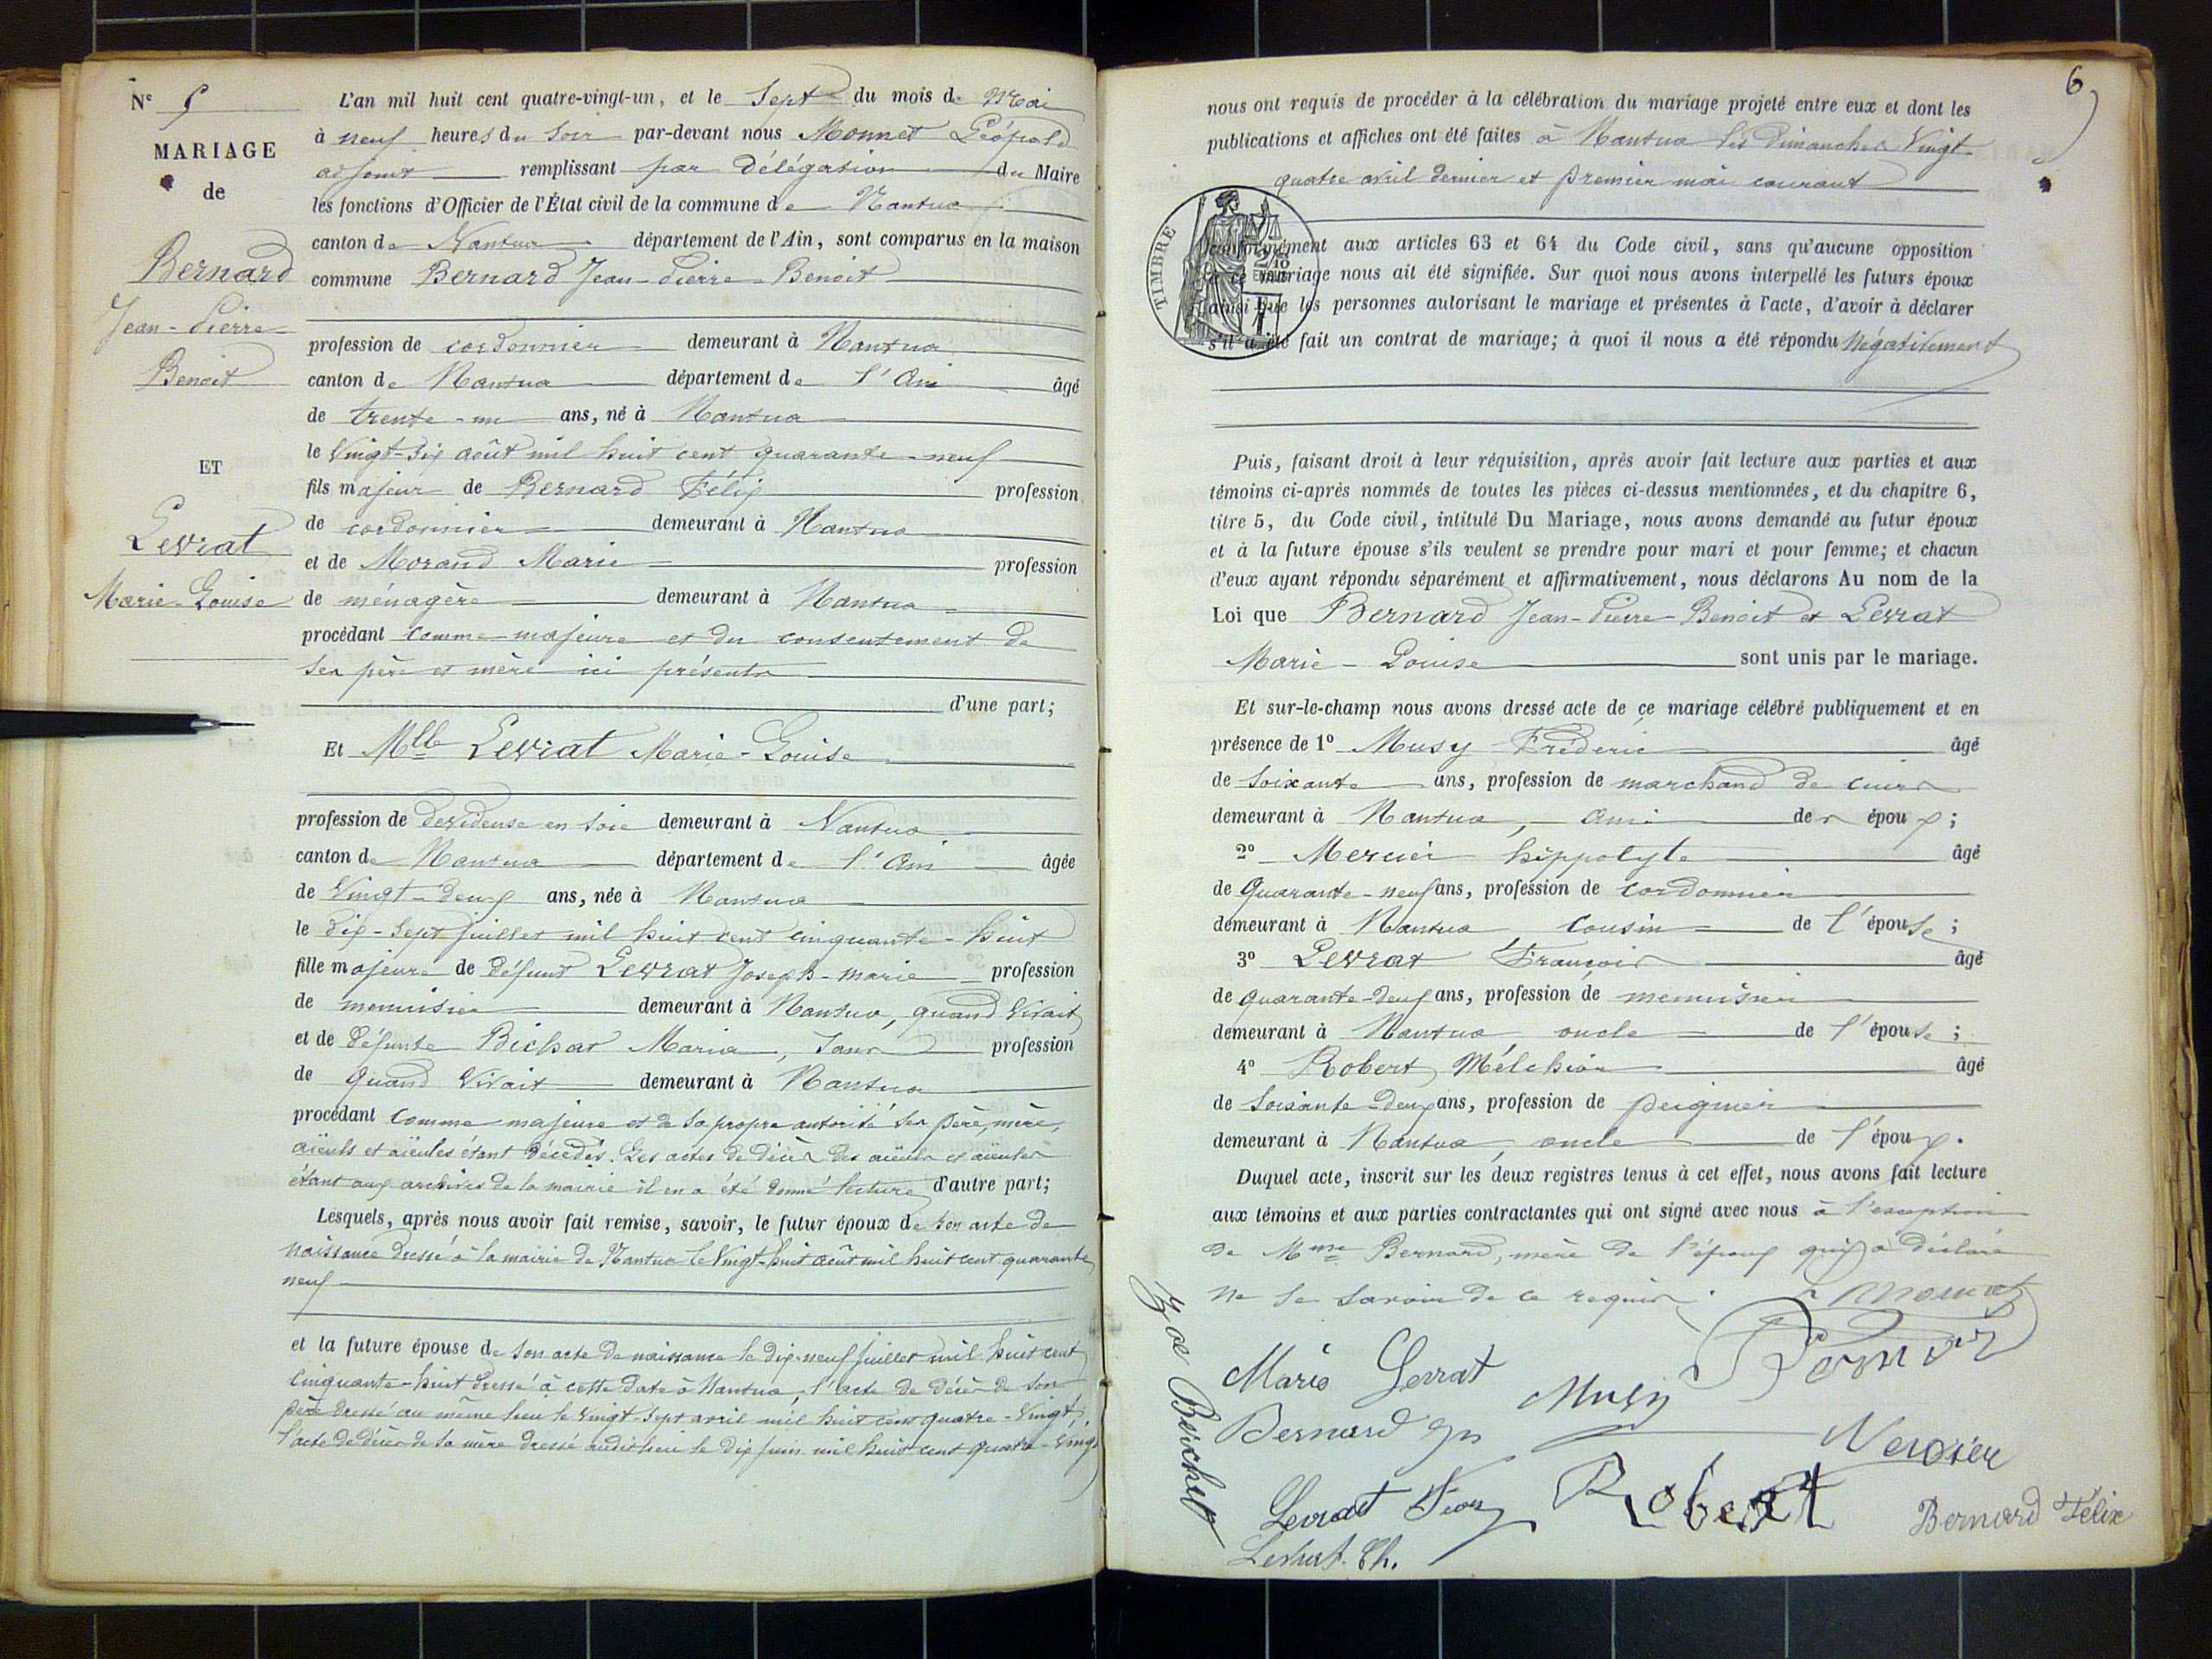 N°
MARIAGE
de
Bernard
Jean-Pierre
Benoit
ET
Levrat
Marie-Louise
L'an mil huit cent quatre-vingt-un, et le Sept du mois de Mai
à neuf heures du Soir par-devant nous Monnet Léopold
adjoint remplissant par Délégation du Maire
les fonctions d'Officier de l'État civil de la commune de Nantua
canton de Nantua département de l'Ain, sont comparus en la maison
commune Bernard Jean-Pierre-Benoit
profession de cordonnier demeurant à Nantua
canton de Nantua département de l'Ain âgé
de trente-un ans, né à Nantua
le Vingt-Six août mil huit cent quarante-neuf
fils majeur de Bernard Félix profession
de cordonnier demeurant à Nantua
et de Morand Marie profession
de ménagère demeurant à Nantua
procédant comme majeure et du consentement de
ses père et mère ici présents
d'une part;
Et Mlle Levrat Marie-Louise
profession de devideuse en soie demeurant à Nantua
canton de Nantua département de l'Ain âgée
de Vingt-deux ans, née à Nantua
le dix-Sept juillet mil huit cent cinquante-huit
fille majeure de défunt Levrat Joseph-marie profession
de menuisier demeurant à Nantua, quand Vivait
et de défunte Bichat Maria, Sans profession
de quand Vivait demeurant à Nantua
procédant comme majeure et de sa propre autorité ses père, mère,
aïeuls et aïeules étant décédés. Les actes de décès des aïeuls et aïeules
étant aux archives de la mairie il en a été donné lecture d'autre part;
Lesquels, après nous avoir fait remise, savoir, le futur époux de son acte de
naissance dressé à la mairie de Nantua le Vingt-huit août mil huit cent quarante
neuf
et la future épouse de son acte de naissance le dix-neuf juillet mil huit cent
cinquante-huit dressé à cette date à Nantua, l'acte de décès de son
père dressé au même lieu le vingt-sept avril mil huit cent quatre-vingt,
l'acte de décès de sa mère dressé audit lieu le dix juin mil huit cent quatre-vingt
6
nous ont requis de procéder à la célébration du mariage projeté entre eux et dont les
publications et affiches ont été faites à Nantua les Dimanches Vingt-
quatre avril dernier et premier mai courant
TIMBRE
conformément aux articles 63 et 64 du Code civil, sans qu'aucune opposition
à ce mariage nous ait été signifiée. Sur quoi nous avons interpellé les futurs époux
ainsi que les personnes autorisant le mariage et présentes à l'acte, d'avoir à déclarer
s'il a été fait un contrat de mariage; à quoi il nous a été répondu Négativement
Puis, faisant droit à leur réquisition, après avoir fait lecture aux parties et aux
témoins ci-après nommés de toutes les pièces ci-dessus mentionnées, et du chapitre 6,
titre 5, du Code civil, intitulé Du Mariage, nous avons demandé au futur époux
et à la future épouse s'ils veulent se prendre pour mari et pour femme; et chacun
d'eux ayant répondu séparément et affirmativement, nous déclarons Au nom de la
Loi que Bernard Jean-Pierre-Benoit et Levrat
Marie-Louise sont unis par le mariage.
Et sur-le-champ nous avons dressé acte de ce mariage célébré publiquement et en
présence de 1° Musy Fréderic âgé
de Soixante ans, profession de marchand de cuirs
demeurant à Nantua, ami des époux;
2° Mercier hippolyte âgé
de Quarante-neuf ans, profession de cordonnier
demeurant à Nantua, cousin de l'épouse;
3° Levrat François âgé
de quarante-deux ans, profession de menuisier
demeurant à Nantua, oncle de l'épouse;
4° Robert Mélchior âgé
de Soixante-deux ans, profession de peignier
demeurant à Nantua, oncle de l'époux.
Duquel acte, inscrit sur les deux registres tenus à cet effet, nous avons fait lecture
aux témoins et aux parties contractantes qui ont signé avec nous à l'exception
de Mme Bernard, mère de l'époux qui a déclaré
ne le savoir de ce requis.
Marie Levrat
Musy
Bernard
Robert
Levrat
Levrat. Th.
Bernard Félix